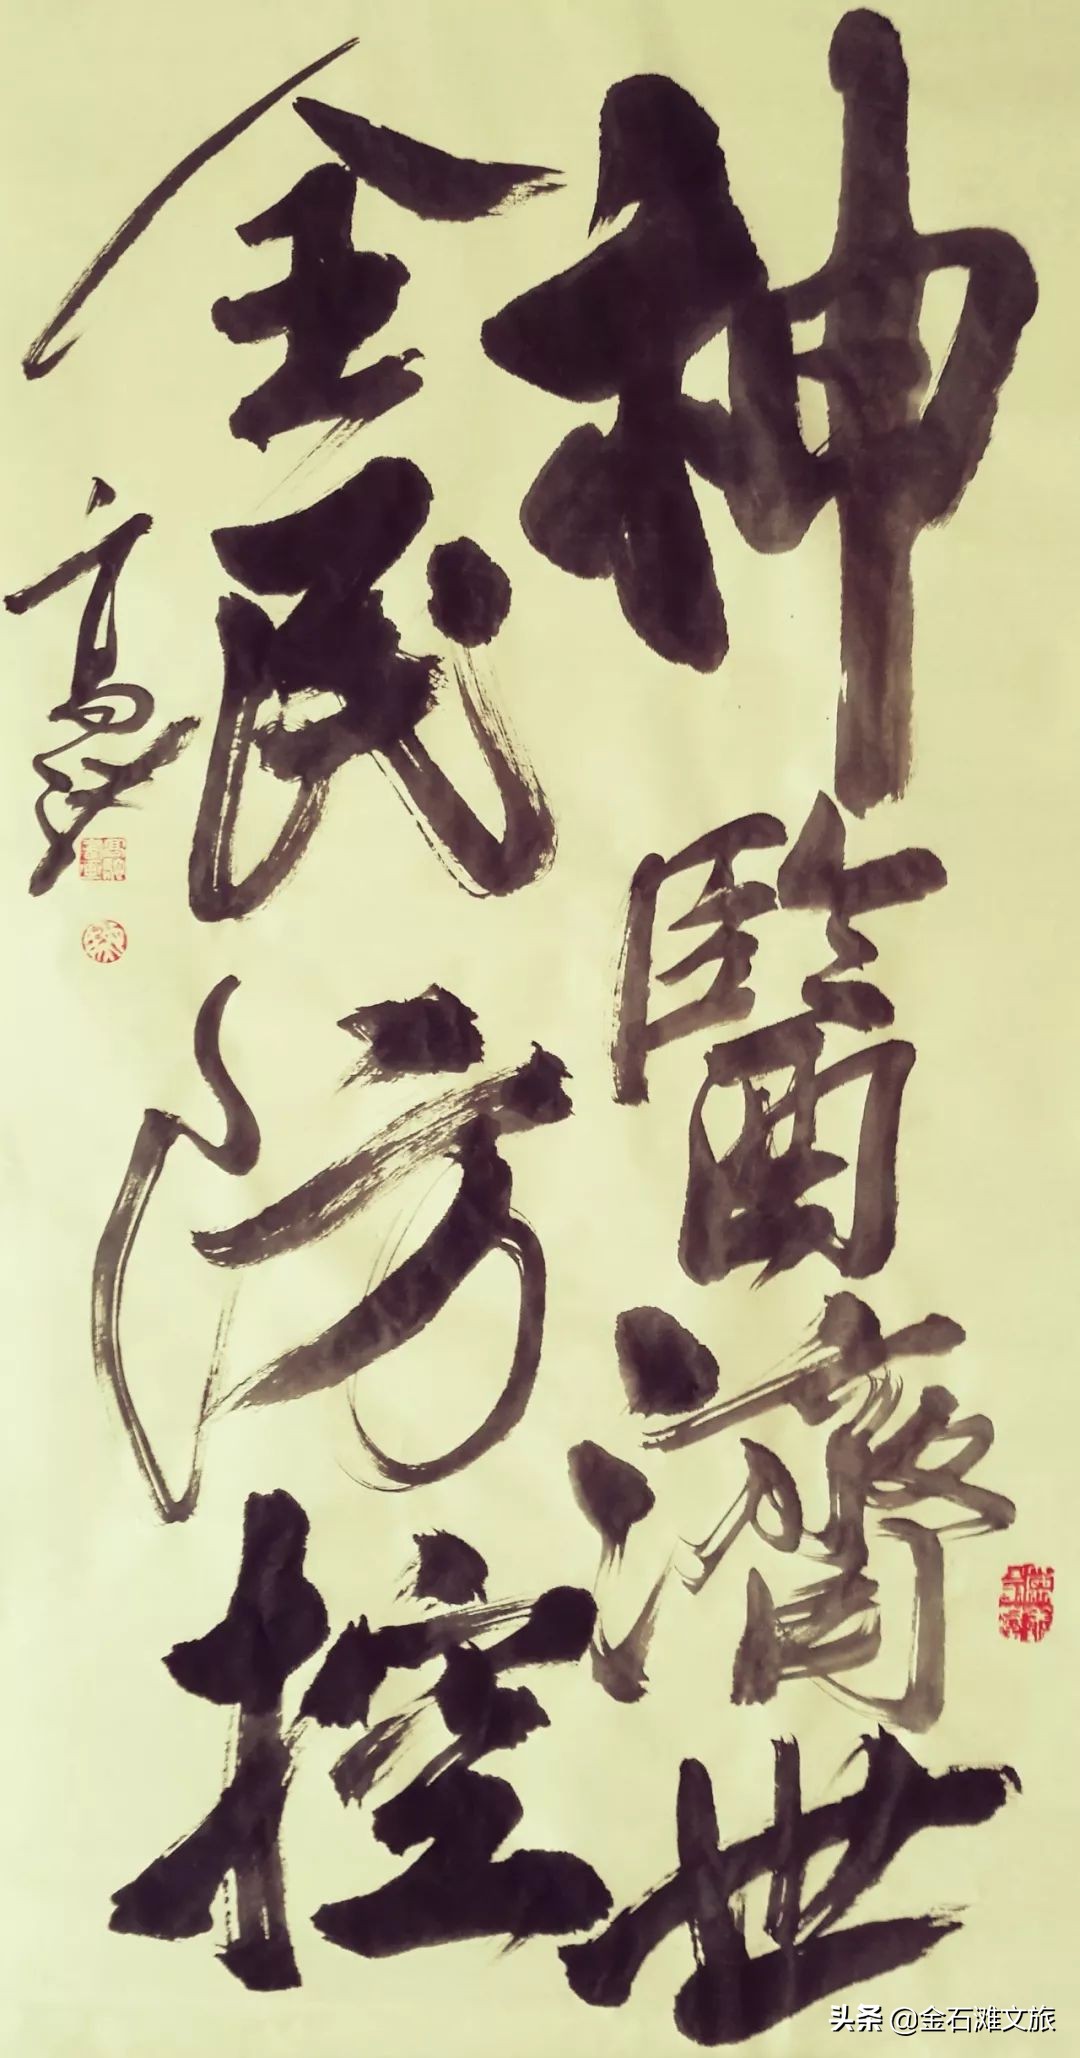 神醫濟世
全民防控
头条 @金石滩文旅